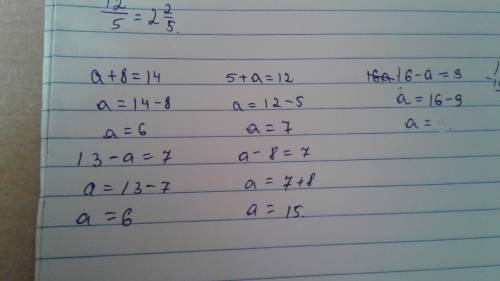 12/5 = 2 2/5.
a+8=14
a=14-8
a=6
13-a=7
a=13-7
a=6
5+a=12
a=12-5
a=7
a-8=7
a=7+8
a=15.
16-a=9
a=16-9
a=